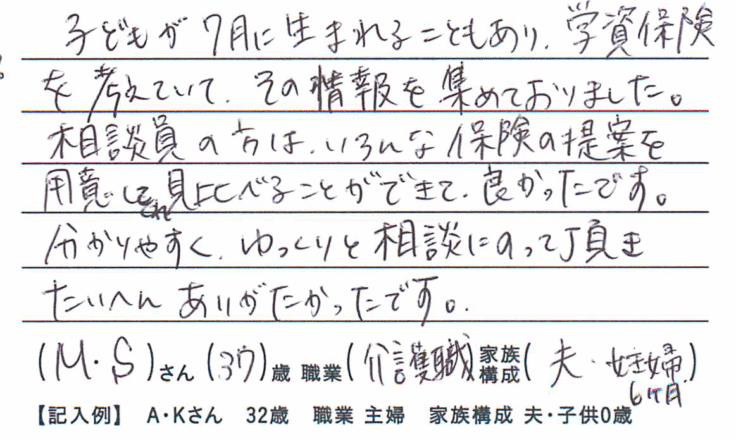 子どもが7月に生まれることもあり、学資保険
を考えていて、その情報を集めておりました。
相談員の方は、いろんな保険の提案を
用意してくれ見比べることができて、良かったです。
分かりやすく、ゆっくりと相談にのって頂き
たいへんありがたかったです。
(M・S)さん (37)歳 職業(介護職)家族構成(夫・妊婦6ヶ月)
【記入例】 A・Kさん 32歳 職業 主婦 家族構成 夫・子供0歳